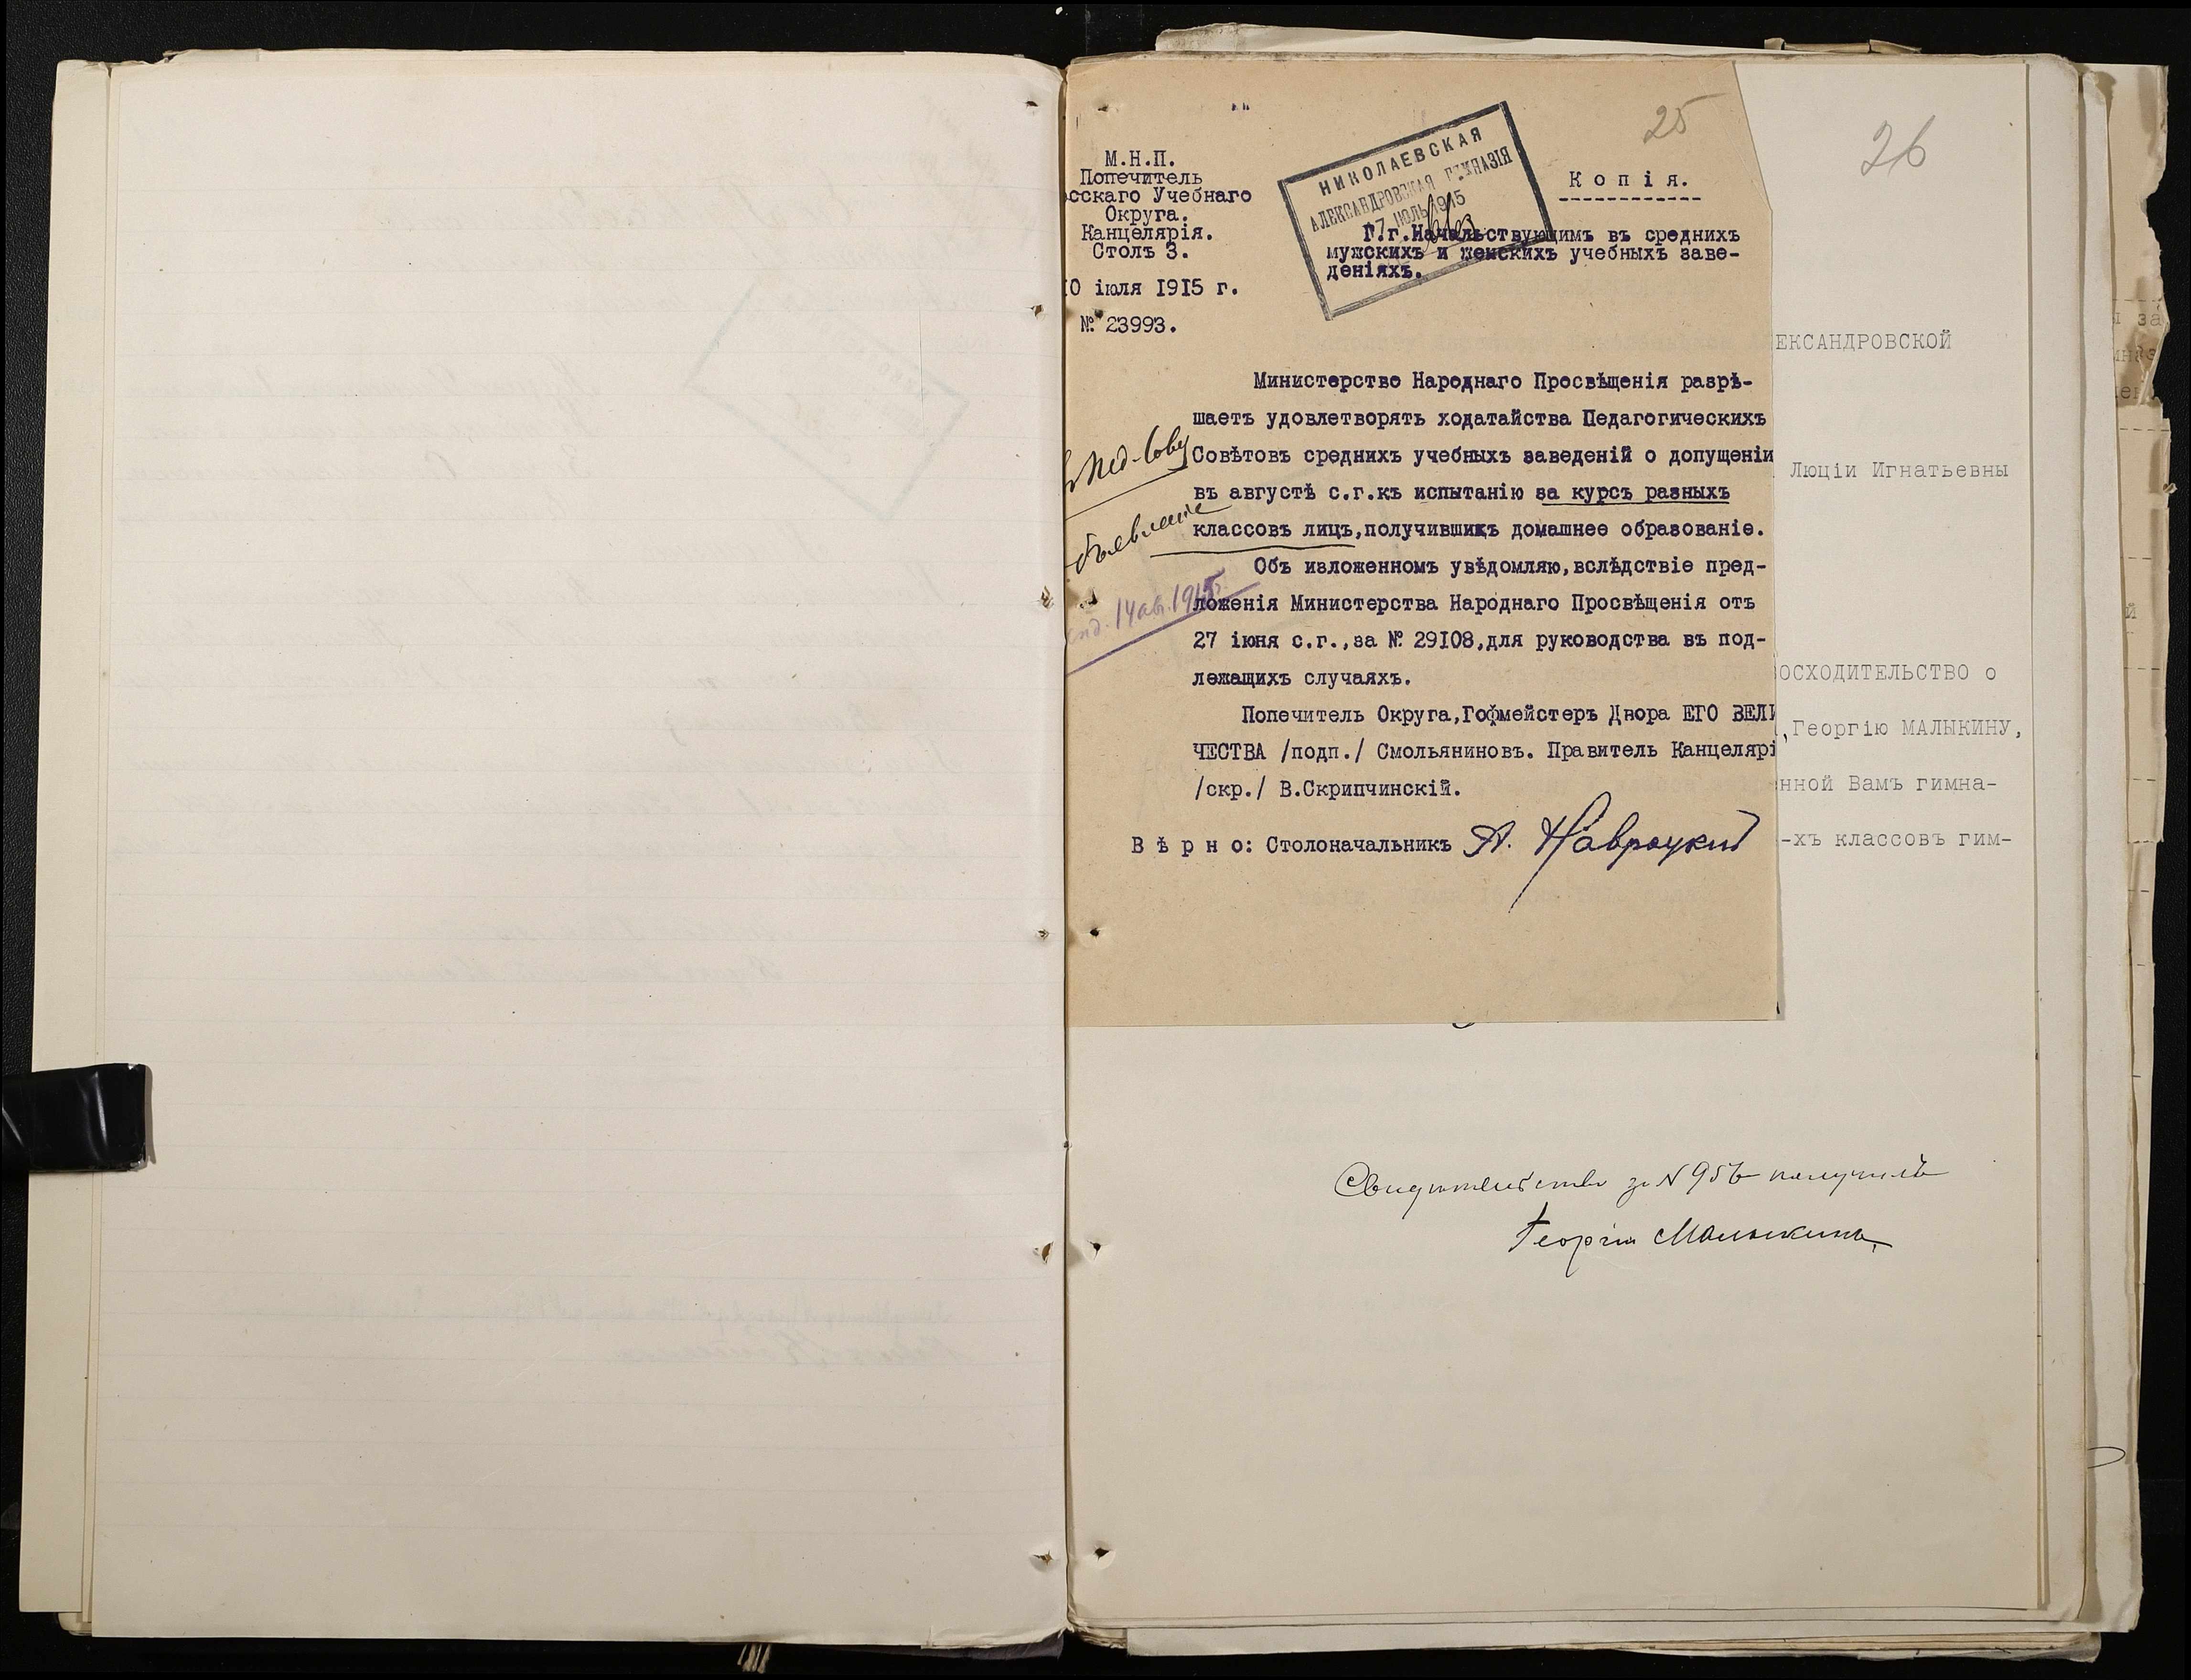 25
26
М.Н.П.
Попечитель
сскаго Учебнаго
Округа.
Канцелярія.
Столъ 3.
0 іюля 1915 г.
№ 23993.
НИКОЛАЕВСКАЯ
АЛЕКСАНДРОВСКАЯ ГИМНАЗІЯ
17 ІЮЛЬ 1915
Копія.
Г.г.Начальствующимъ въ среднихъ
мужскихъ и женскихъ учебныхъ заве-
деніяхъ.
Министерство Народнаго Просвѣщенія разрѣ-
шаетъ удовлетворять ходатайства Педагогическихъ
Совѣтовъ среднихъ учебныхъ заведеній о допущеніи
въ августѣ с.г.къ испытанію за курсъ разныхъ
классовъ лицъ,получившихъ домашнее образованіе.
Объ изложенномъ увѣдомляю,вслѣдствіе пред-
ложенія Министерства Народнаго Просвѣщенія отъ
27 іюня с.г.,за № 29108,для руководства въ под-
лежащихъ случаяхъ.
Попечитель Округа,Гофмейстеръ Двора ЕГО ВЕЛИ
ЧЕСТВА /подп./ Смольяниновъ. Правитель Канцеляріи
/скр./ В.Скрипчинскій.
Вѣрно: Столоначальникъ А. Навроцкій
14 авг. 1915г.
ЕКСАНДРОВСКОЙ
Люціи Игнатьевны
ОСХОДИТЕЛЬСТВО о
,Георгію МАЛЫКИНУ,
нной Вамъ гимна-
-хъ классовъ гим-
Свидѣтельство за N 956 получилъ
Георгій Малыкинъ